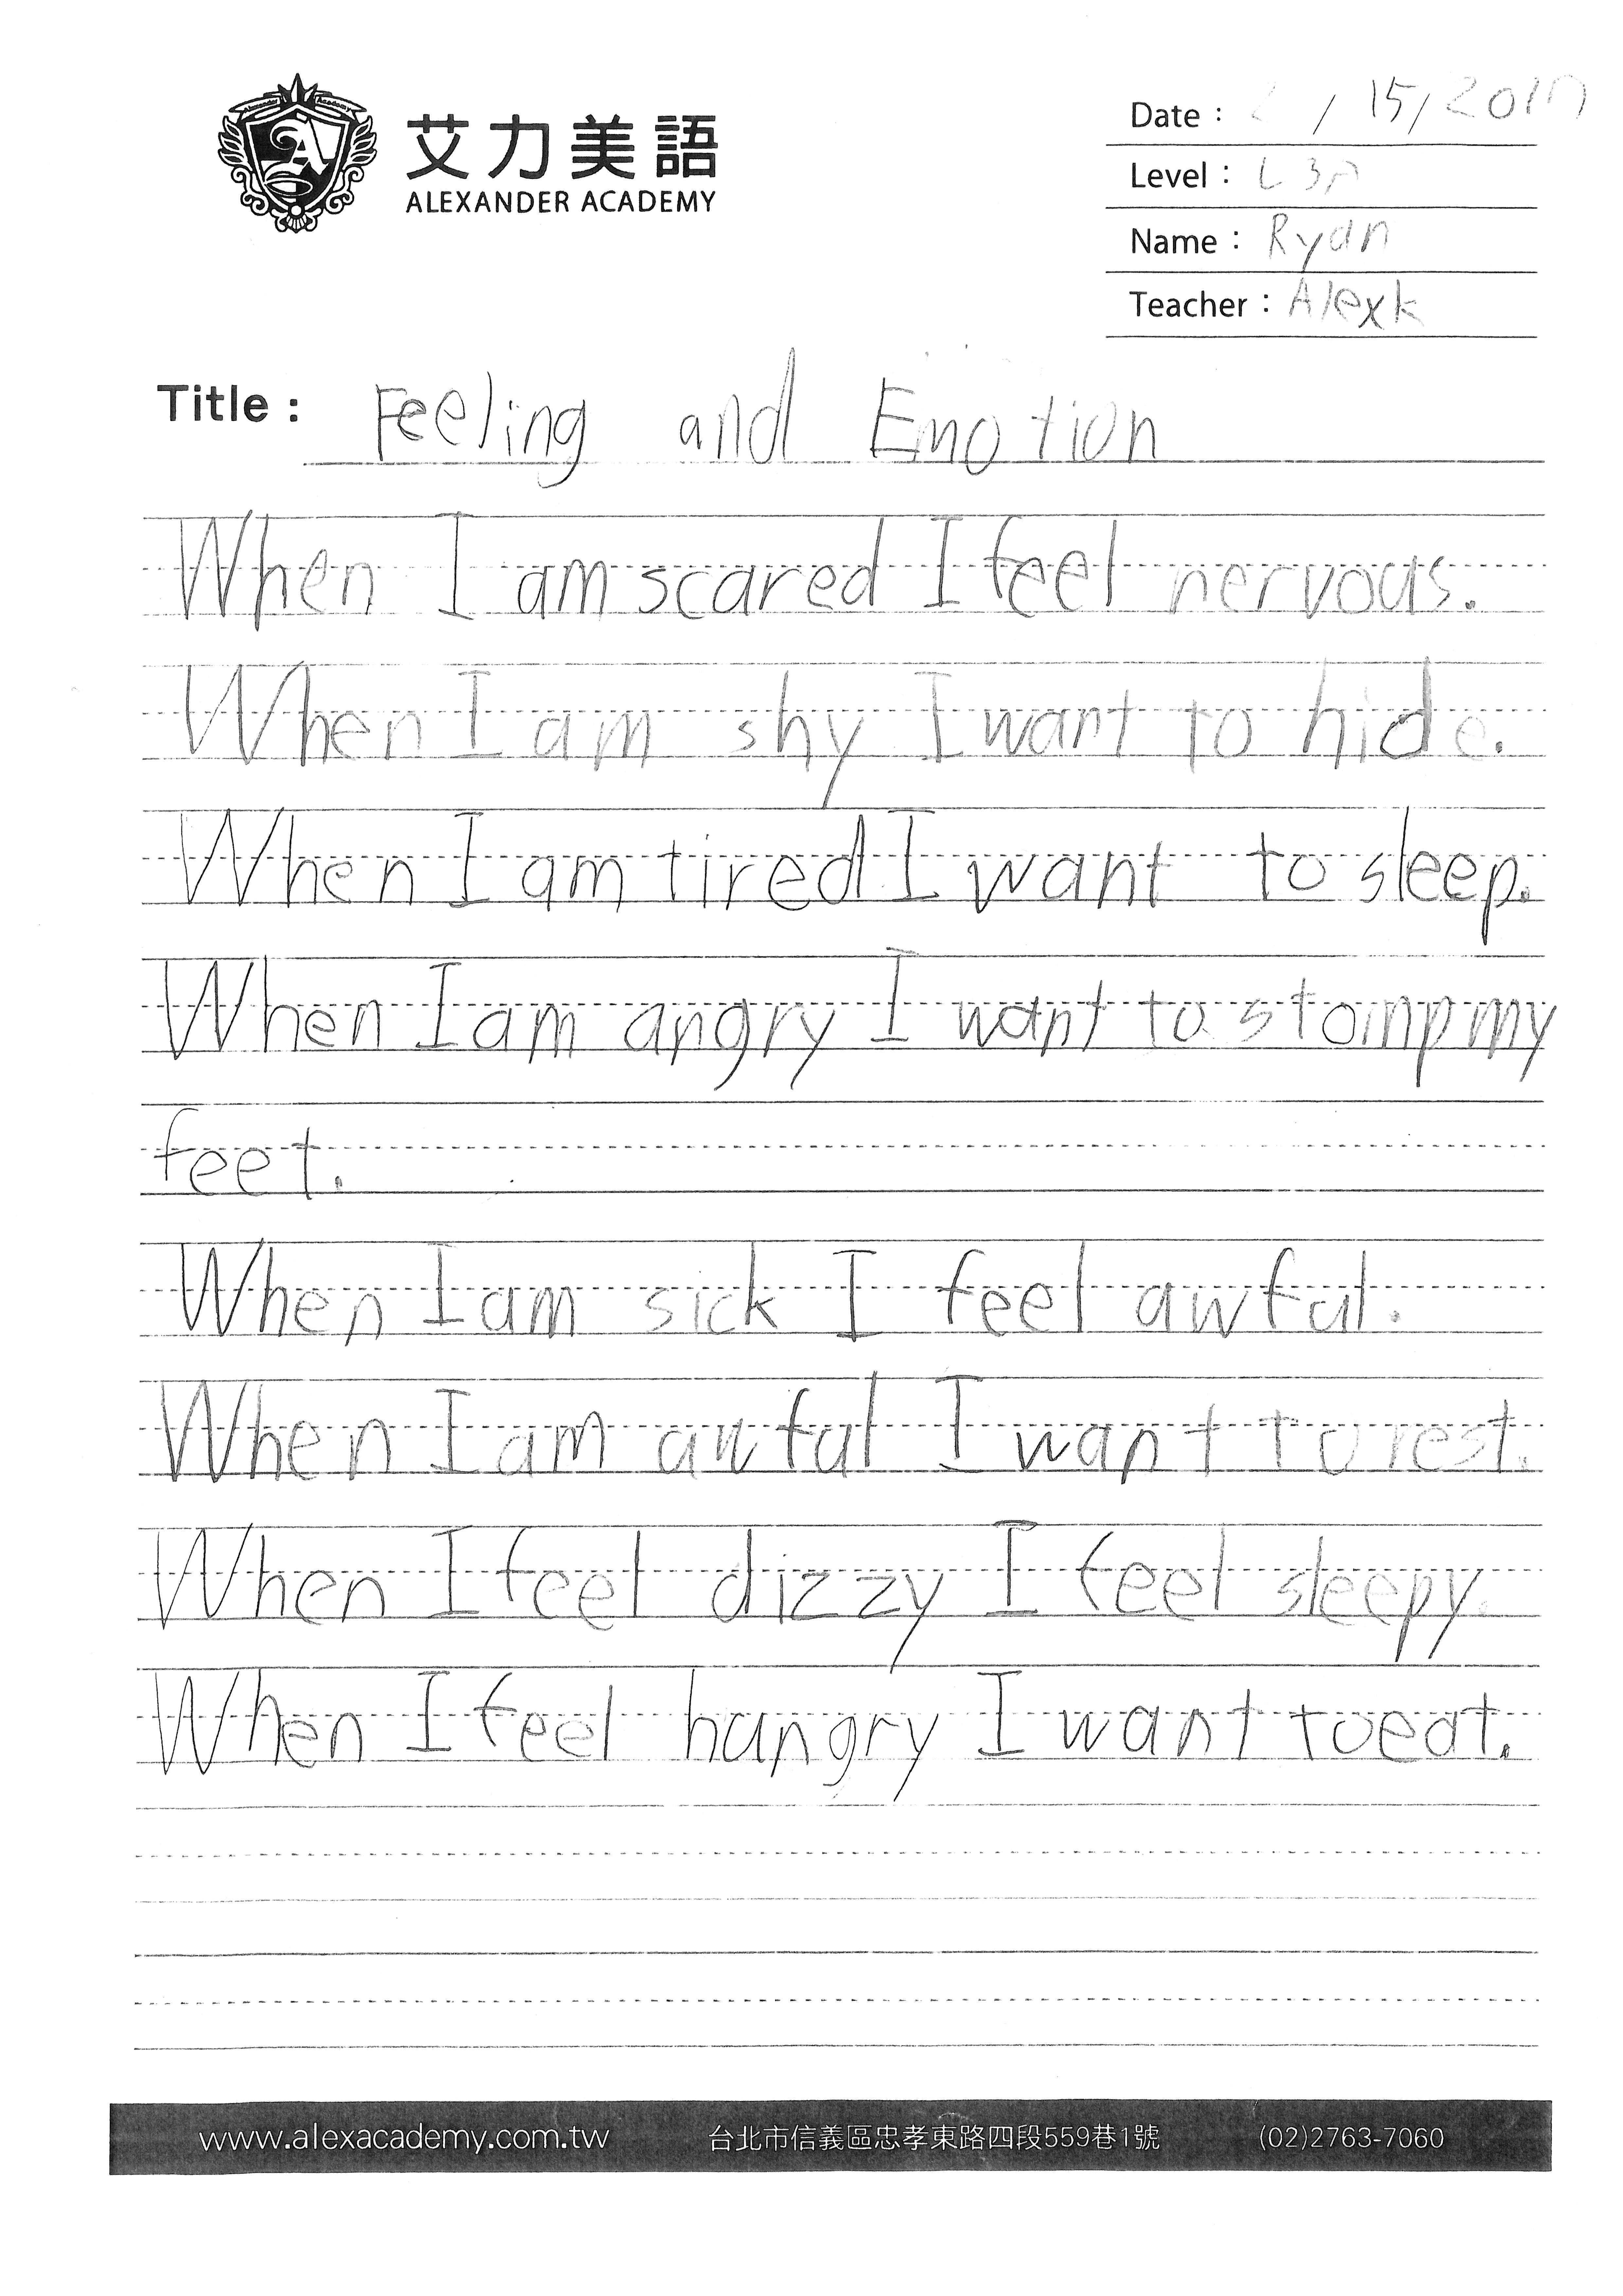 艾力美語
ALEXANDER ACADEMY
Date : / 15 / 2017
Level : L3A
Name : Ryan
Teacher : Alexk
Title : Feeling and Emotion
When I am scared I feel nervous.
When I am shy I want to hide.
When I am tired I want to sleep.
When I am angry I want to stomp my
feet.
When I am sick I feel awful.
When I am awful I want to rest.
When I feel dizzy I feel sleepy.
When I feel hungry I want to eat.
www.alexacademy.com.tw 台北市信義區忠孝東路四段559巷1號 (02)2763-7060